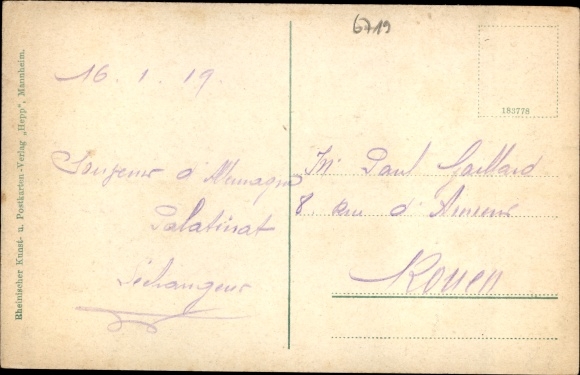 6719
183778
16. 1. 19.
Souvenir d'Allemagne
Palatinat
L'échangeur
Mr Paul Gaillard
8, Rue d'Amiens
Rouen
Rheinischer Kunst- u. Postkarten-Verlag „Hepp", Mannheim.